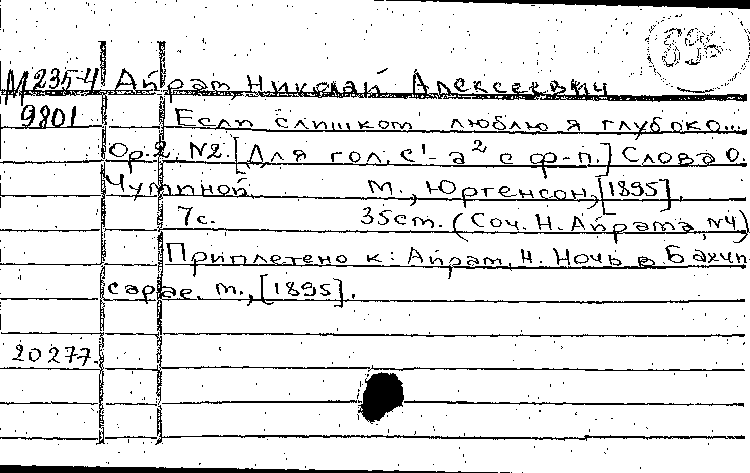 895
М235-4 Айрат, Николай Алексеевич
9801 Если слишком люблю я глубоко...
Ор.2, N2. [Для гол. c¹-a² с ф-п.] Слова О.
Чуминой М., Юргенсон, [1895].
7с. 35см. (Соч. Н. Айрата, N4)
Приплетено к: Айрат, Н. Ночь в Бахчи-
сарае. М., [1895].
20277.